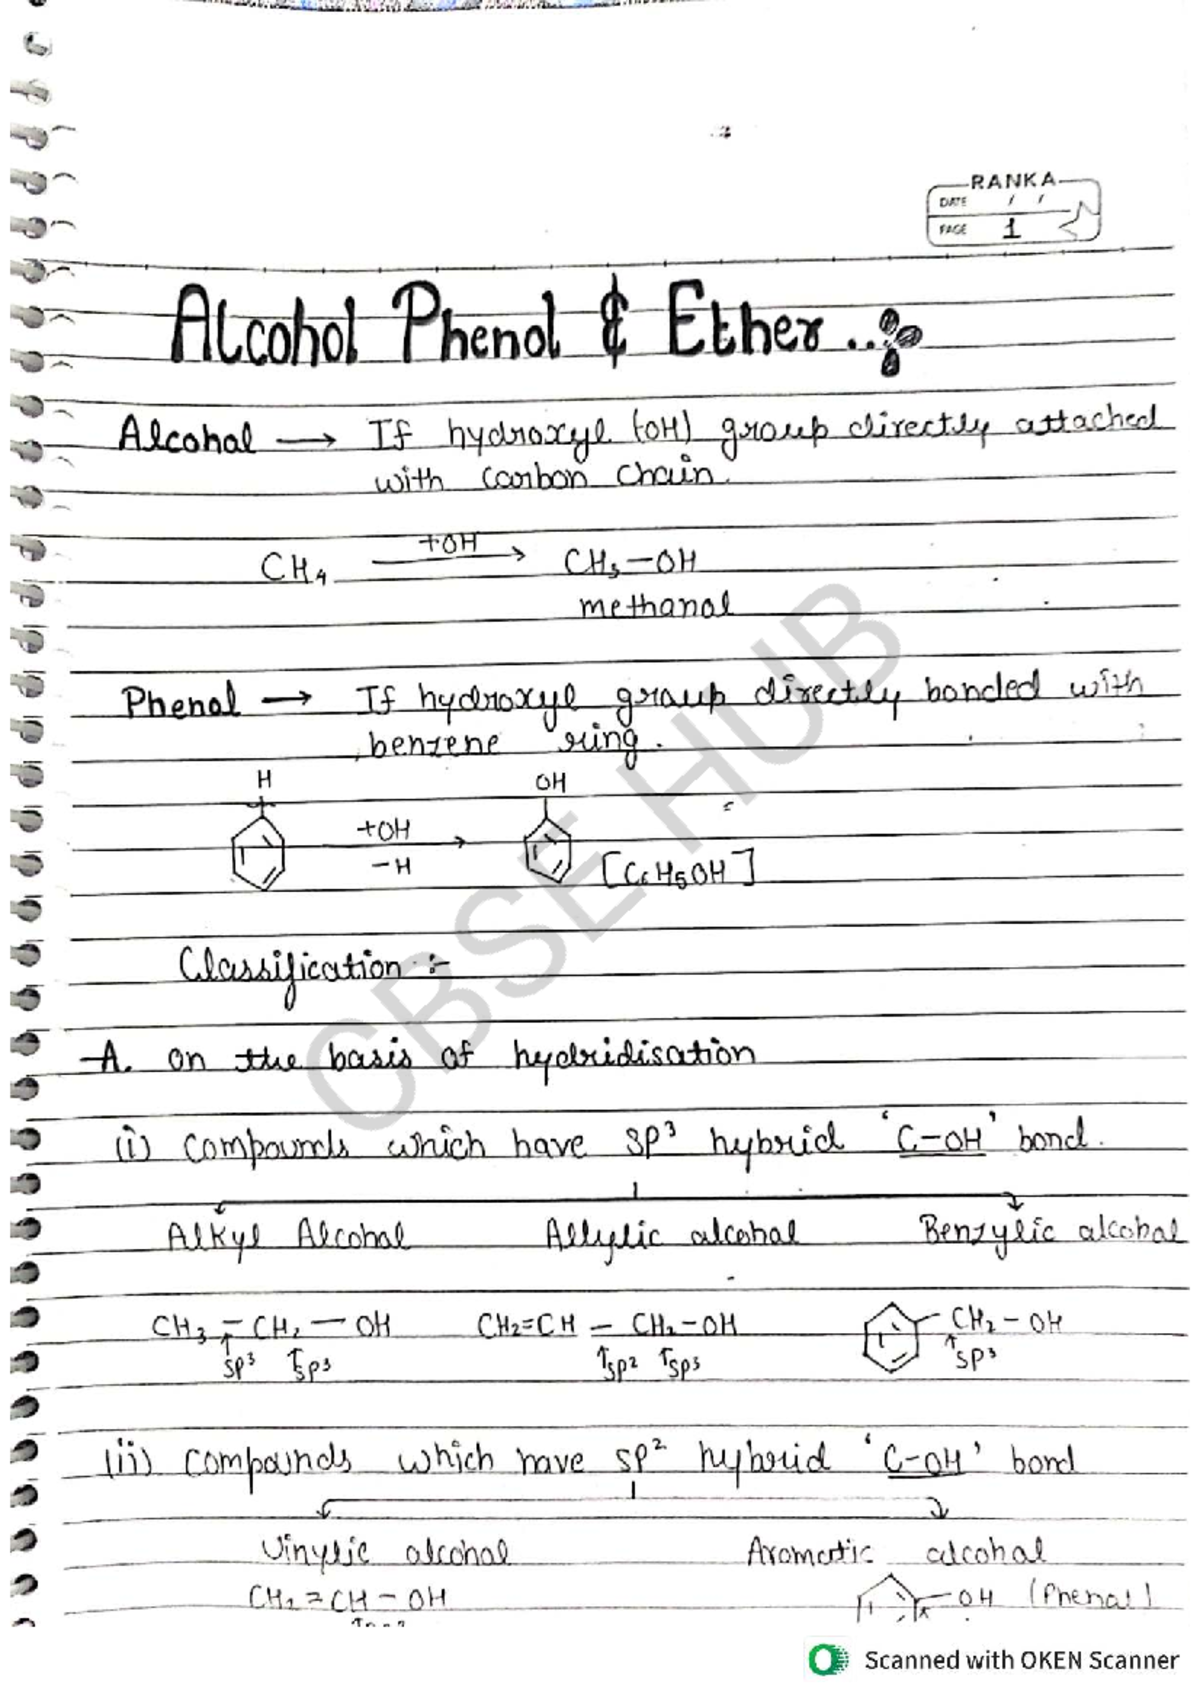 RANKA
DATE / /
PAGE 1
Alcohol Phenol & Ether
Alcohol → If hydroxyl (OH) group directly attached
with carbon chain.
CH₄ +OH → CH₃—OH
methanol
Phenol → If hydroxyl group directly bonded with
benzene ring.
H OH
+OH →
-H
[C₆H₅OH]
Classification :-
A. on the basis of hydridisation
(i) compounds which have sp³ hybrid 'C-OH' bond.
Alkyl Alcohol Allylic alcohol Benzylic alcohol
CH₃ — CH₂ — OH CH₂=CH — CH₂-OH CH₂ - OH
↑sp³ ↑sp³ ↑sp² ↑sp³ ↑sp³
(ii) compounds which have sp² hybrid 'C-OH' bond
Vinylic alcohol Aromatic alcohol
CH₂=CH-OH OH (Phenol)
CBSE HUB
Scanned with OKEN Scanner